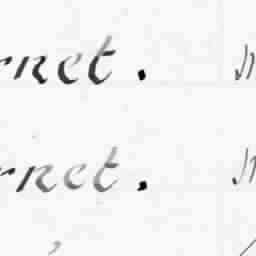 rnet.
rnet.